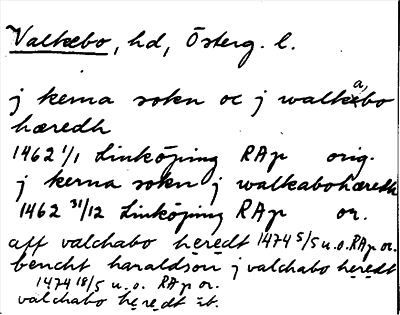 Valkebo, hd, Österg. l.
j kerna sokn oc j walkabo
hæredh
1462 1/1 Linköping RAp orig.
j kerna sokn j walkabohæredh
1462 31/12 Linköping RAp or.
aff valchabo heredt 1474 5/5 u.o. RAp or.
bencht haraldson j valchabo heredt
1474 18/5 u.o. RAp or.
valchabo heredt st.